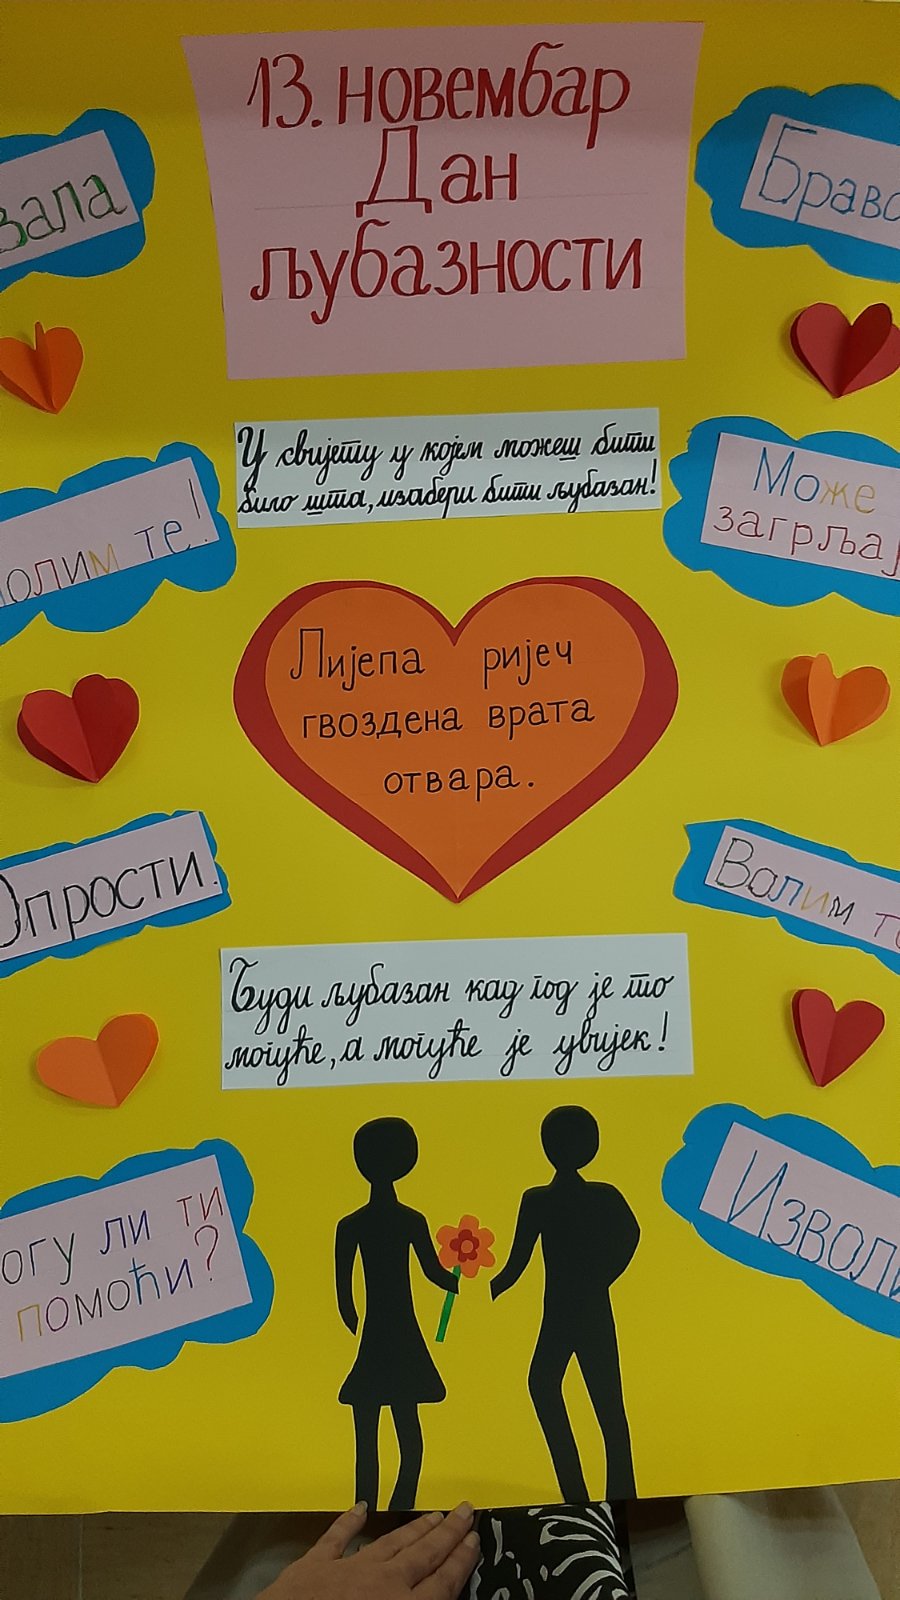 13. новембар
Дан
љубазности
вала
Браво
У свијету у којем можеш бити
било шта, изабери бити љубазан!
олим те!
Може
загрљај
Лијепа ријеч
гвоздена врата
отвара.
Опрости.
Волим т
Буди љубазан кад год је то
могуће, а могуће је увијек!
огу ли ти
помоћи?
Изволи